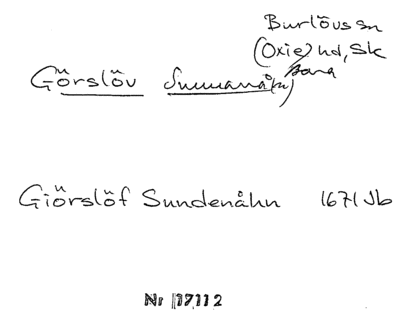 Burlövs sn
(Oxie) hd, Sk
Bara
Görslöv
Giörslöf Sundenåhn 1671 Jb
Nr 17112